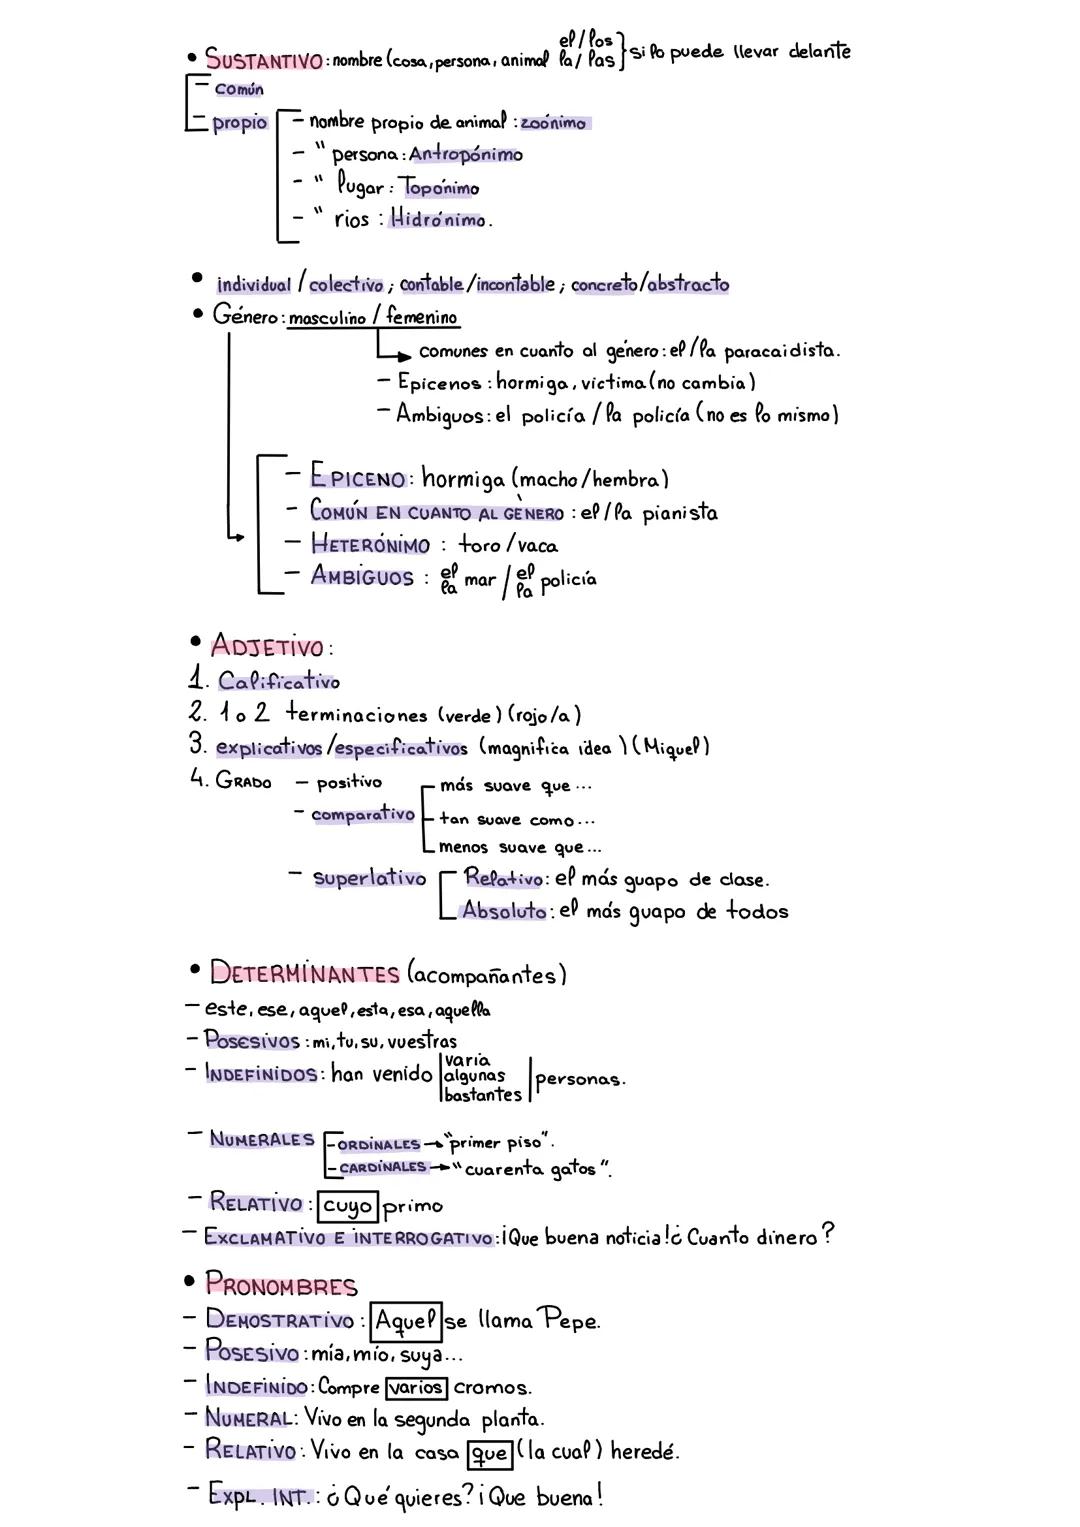 • SUSTANTIVO: nombre (cosa, persona, animal el/los la/las } si lo puede llevar delante
– común
– propio – nombre propio de animal: zoónimo
– " persona: Antropónimo
– " lugar: Topónimo
– " rios: Hidrónimo.
• individual / colectivo; contable/incontable; concreto/abstracto
• Género: masculino / femenino
comunes en cuanto al género: el/la paracaidista.
– Epicenos: hormiga, victima (no cambia)
– Ambiguos: el policía / la policía (no es lo mismo)
– EPICENO: hormiga (macho/hembra)
– COMÚN EN CUANTO AL GÈNERO: el/la pianista
– HETERÓNIMO: toro/vaca
– AMBIGUOS: el la mar / el la policía
• ADJETIVO:
1. Calificativo
2. 1 o 2 terminaciones (verde) (rojo/a)
3. explicativos/especificativos (magnifica idea) (Miguel)
4. GRADO – positivo
más suave que ...
– comparativo – tan suave como...
menos suave que...
– superlativo Relativo: el más guapo de clase.
Absoluto: el más guapo de todos
• DETERMINANTES (acompañantes)
– este, ese, aquel, esta, esa, aquella
– POSESIVOS: mi, tu, su, vuestras
– INDEFINIDOS: han venido | varia algunas bastantes | personas.
– NUMERALES – ORDINALES → "primer piso".
– CARDINALES → "cuarenta gatos".
– RELATIVO: cuyo primo
– EXCLAMATIVO E INTERROGATIVO: ¡Que buena noticia! ¿Cuanto dinero?
• PRONOMBRES
– DEMOSTRATIVO: Aquel se llama Pepe.
– POSESIVO: mía, mío, suya...
– INDEFINIDO: Compre varios cromos.
– NUMERAL: Vivo en la segunda planta.
– RELATIVO: Vivo en la casa que (la cual) heredé.
– EXPL. INT.: ¿Qué quieres? ¡Que buena!